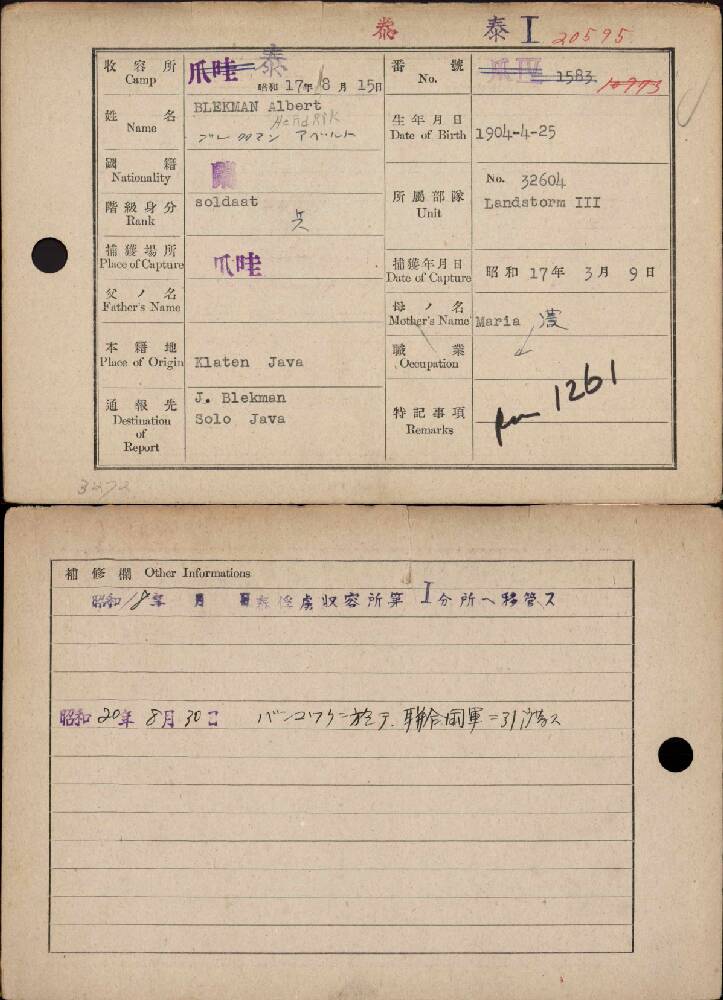 泰 泰 I 20595
收容所 Camp 爪哇 泰 昭和 17年 8月 15日
番號 No. 爪IV 1583 10993
姓名 Name BLEKMAN Albert
HendRIK
ブレクマン アベルト
生年月日 Date of Birth 1904-4-25
國籍 Nationality 蘭
所屬部隊 Unit No. 32604
Landstorm III
階級身分 Rank soldaat
兵
捕獲場所 Place of Capture 爪哇
捕獲年月日 Date of Capture 昭和 17年 3月 9日
父ノ名 Father's Name
母ノ名 Mother's Name Maria
本籍地 Place of Origin Klaten Java
職業 Occupation
通報先 Destination of Report J. Blekman
Solo Java
特記事項 Remarks 1261
3272
補修欄 Other Informations
昭和18年 月 日泰俘虜収容所第I分所ヘ移管ス
昭和20年8月30日 バンコックニ於テ聯合國軍ニ引渡ス